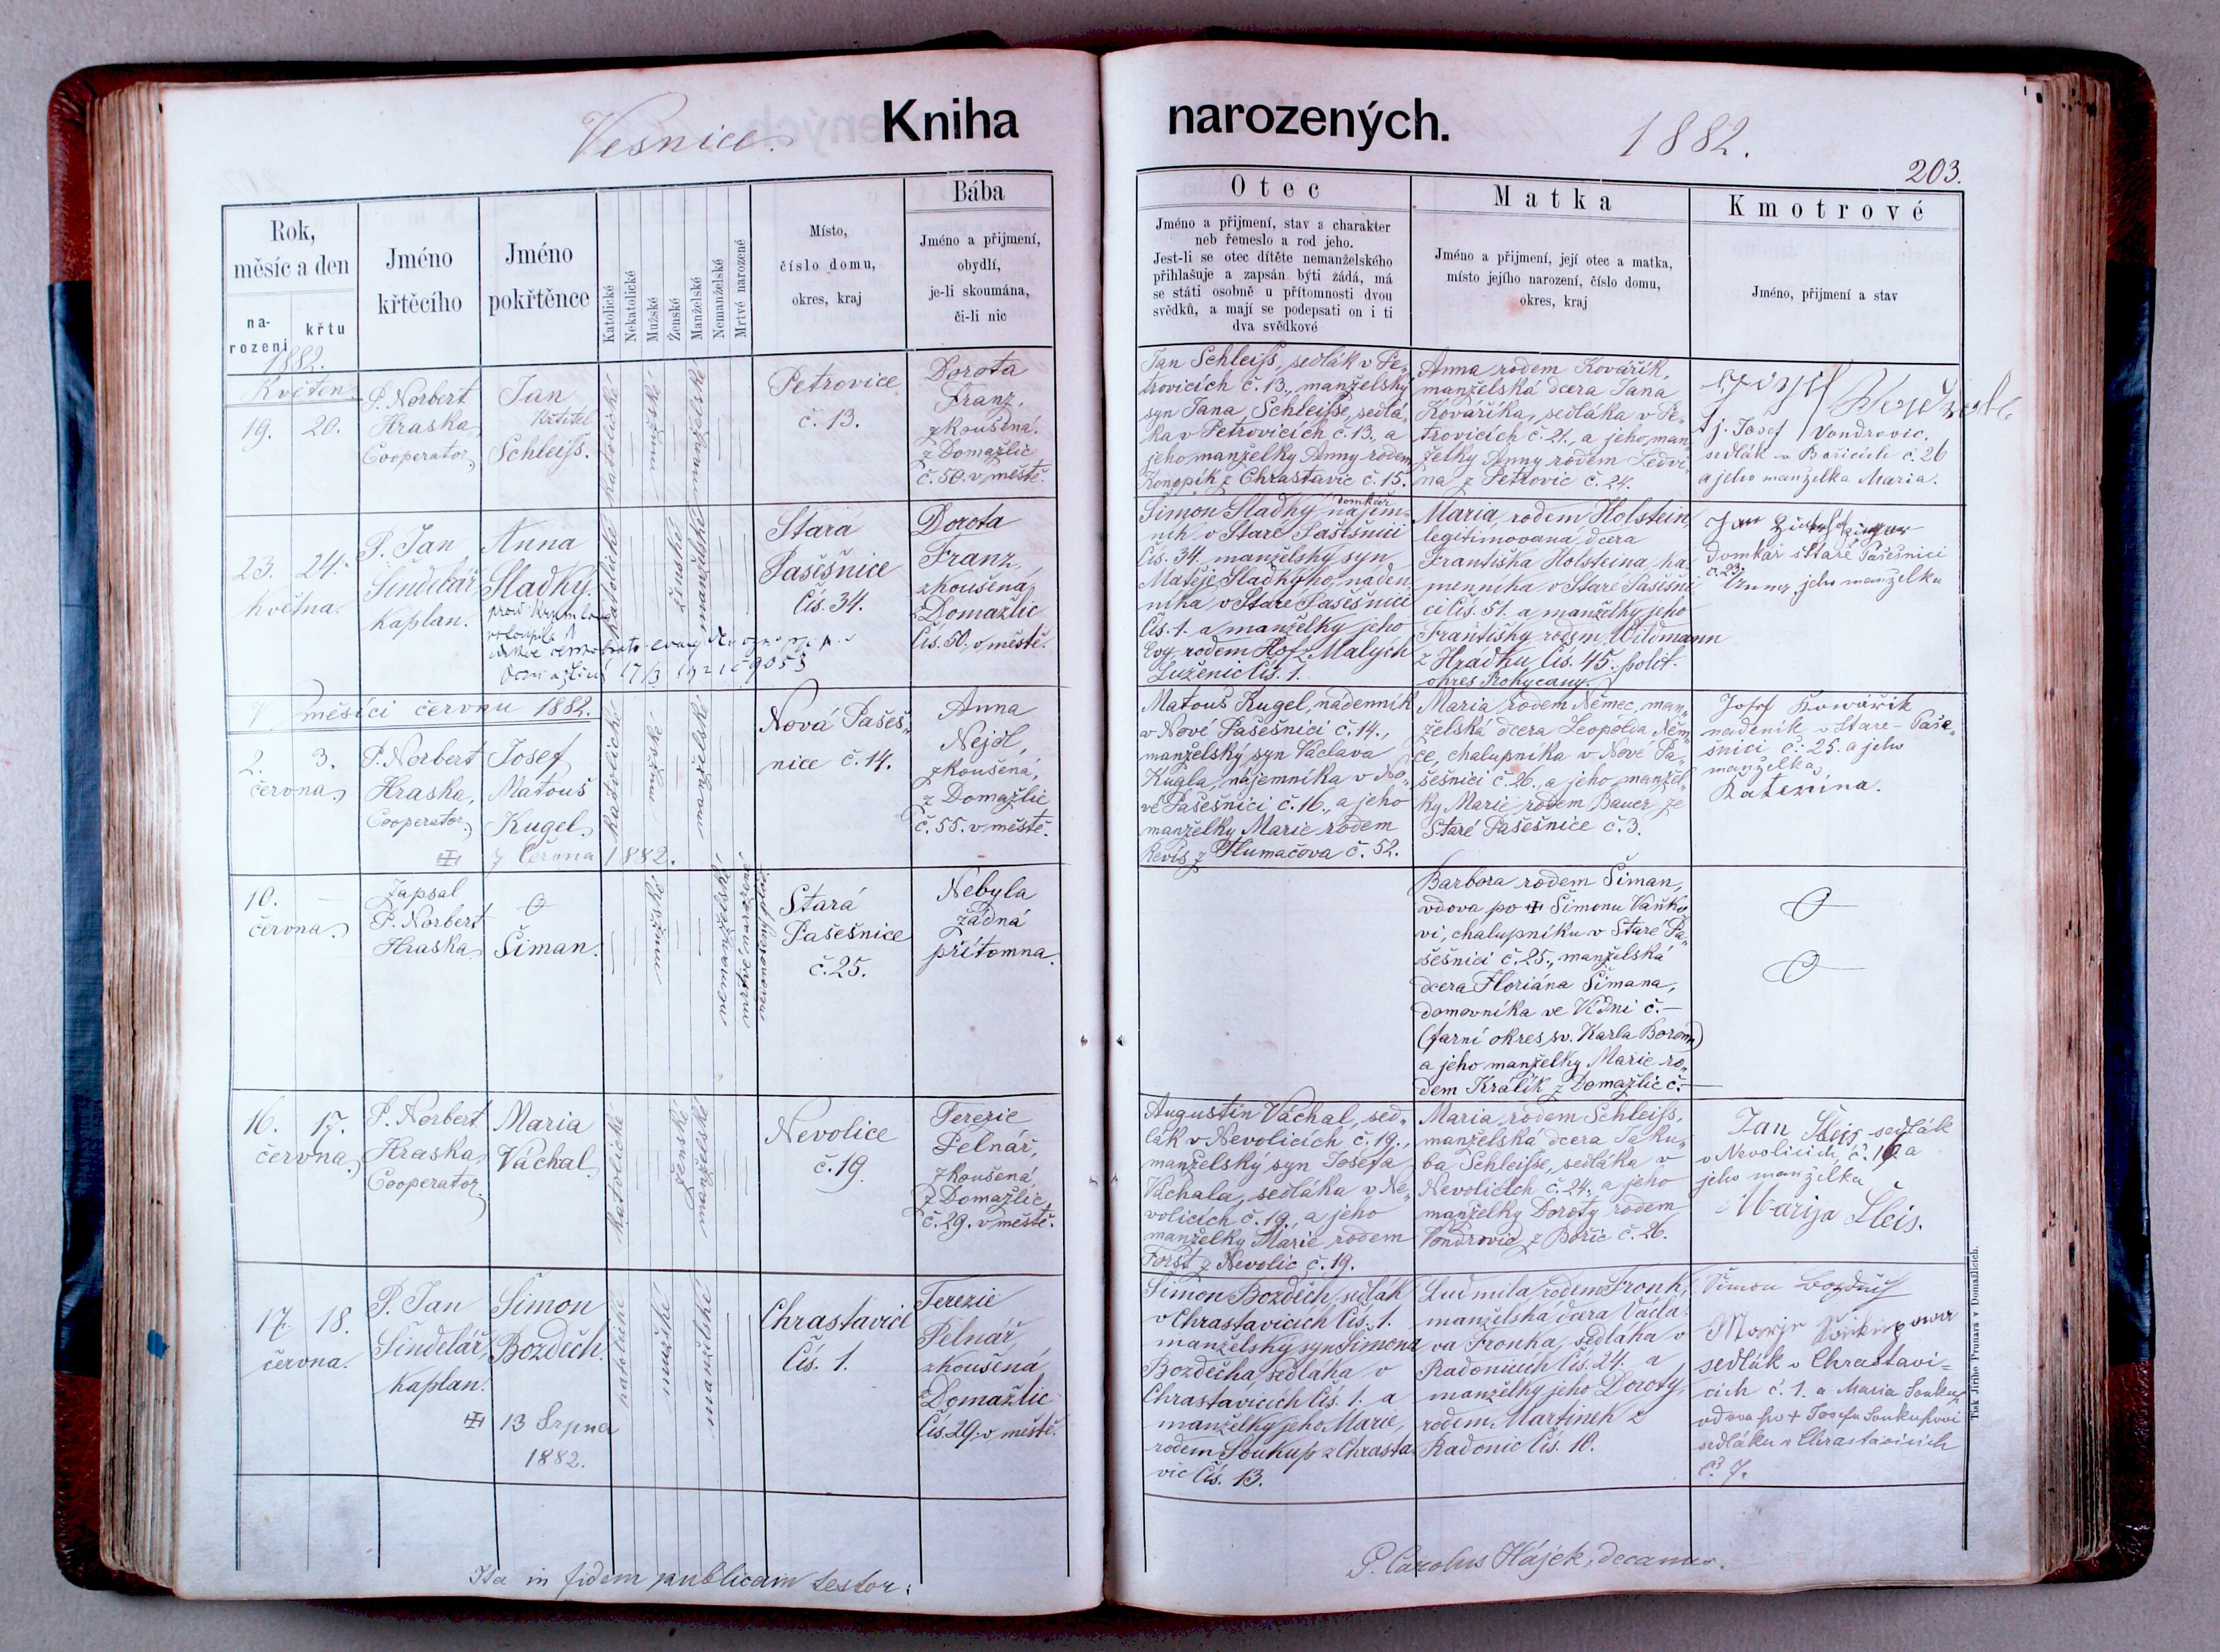 Vesnice.
Kniha
narozených.
1882.
203.
Rok,
měsíc a den
na-
rození
křtu
Jméno
křtěcího
Jméno
pokřtěnce
Katolické
Nekatolické
Mužské
Ženské
Manželské
Nemanželské
Mrtvé narozené
Místo,
číslo domu,
okres, kraj
Bába
Jméno a přijmení,
obydlí,
je-li skoumána,
či-li nic
Otec
Jméno a přijmení, stav a charakter
neb řemeslo a rod jeho.
Jest-li se otec dítěte nemanželského
přihlašuje a zapsán býti žádá, má
se státi osobně u přítomnosti dvou
svědků, a mají se podepsati on i ti
dva svědkové
Matka
Jméno a přijmení, její otec a matka,
místo jejího narození, číslo domu,
okres, kraj
Kmotrové
Jméno, přijmení a stav
1882.
Květen
19. 20.
P. Norbert
Hraska,
Cooperator.
Jan
Křtitel
Schleiss.
katolické
mužské
manželské
Petrovice
č. 13.
Dorota
Franz,
zkoušená.
z Domažlic
č. 50. v městě.
Jan Schleiss, sedlák v Pe-
trovicích č. 13., manželský
syn Jana Schleisse, sedlá-
ka v Petrovicích č. 13., a
jeho manželky Anny rodem
Konopík z Chrastavic č. 15.
Anna rodem Kovářík,
manželská dcera Jana
Kováříka, sedláka v Pe-
trovicích č. 21., a jeho man-
želky Anny rodem Ledvi-
na z Petrovic č. 24.
tj. Josef Vondrovic.
sedlák v Bořicích č. 26
a jeho manželka Maria.
23. 24.
Května.
P. Jan
Šindelář
Kaplan.
Anna
Sladký.
17/3 1921
katolické
ženské
manželské
Stará
Pašešnice
Čís. 34.
Dorota
Franz,
zkoušená,
z Domažlic
Čís. 50. v městě.
domkář
Šimon Sladký nájem-
ník v Staré Pašešnici
Čís. 34. manželský syn
Matěje Sladkýho, náden
níka v Staré Pašešnici
Čís. 1. a manželky jeho
Evy rodem Hof z Malých
Luženic Čís. 1.
Maria, rodem Holstein,
legitimovaná dcera
Františka Holsteina, ka
menníka v Staré Pašešni
ci Čís. 51. a manželky jeho
Františky rodem Wildmann
z Hrádku Čís. 45. polit.
okres Rokycany.
domkář v Staré Pašešnici
č. 23.
Anna, jeho manželka
V měsíci červnu 1882.
2. 3.
června.
P. Norbert
Hraska,
Cooperator.
Josef
Matouš
Kugel.
7 Června 1882.
katolické
mužské
manželské
Nová Pašeš-
nice č. 14.
Anna
Nejdl,
zkoušená,
z Domažlic
č. 55. v městě.
Matouš Kugel, nádenník
v Nové Pašešnici č. 14.,
manželský syn Václava
Kugla, nájemníka v No-
vé Pašešnici č. 16., a jeho
manželky Marie rodem
Kevis z Tlumačova č. 52.
Maria rodem Němec, man-
želská dcera Leopolda Něm-
ce, chalupníka v Nové Pa-
šešnici č. 26., a jeho manžel-
ky Marie rodem Bauer ze
Staré Pašešnice č. 3.
Josef Kowářík
nadeník v Stare-Paše-
šnici č. 25. a jeho
manželka,
Kateřina.
10. —
června.
Zapsal
P. Norbert
Hraska,
Šiman.
mužské
nemanželské
mrtvé narozené
nedonošený plod
Stará
Pašešnice
č. 25.
Nebyla
žádná
přítomna.
Barbora rodem Šiman,
vdova po Šimonu Vaňko
vi, chalupníku v Staré Pa-
šešnici č. 25., manželská
dcera Floriána Šimana,
domovníka ve Vídni č. —
(farní okres sv. Karla Borom)
a jeho manželky Marie ro-
dem Králík z Domažlic č. —
16. 17.
června.
P. Norbert
Hraska,
Cooperator.
Maria
Váchal.
katolické
ženské
manželské
Nevolice
č. 19.
Terezie
Pelnář,
zkoušená,
z Domažlic
č. 29. v městě.
Augustin Váchal, sed-
lák v Nevolicích č. 19.,
manželský syn Josefa
Váchala, sedláka v Ne-
volicích č. 19., a jeho
manželky Marie rodem
Forst z Nevolic č. 19.
Maria rodem Schleiss,
manželská dcera Jaku-
ba Schleisse, sedláka v
Nevolicích č. 24., a jeho
manželky Doroty rodem
Vondrovic z Bořic č. 26.
Jan Šleis sedlák
v Nevolicích, č. 19. a
jeho manželka
Marija Šleis.
17. 18.
června.
P. Jan
Šindelář
Kaplan.
Šimon
Bozděch.
13 Srpna
1882.
katolické
mužské
manželské
Chrastavice
Čís. 1.
Terezie
Pelnář,
zkoušená,
z Domažlic
Čís. 29. v městě.
Šimon Bozděch, sedlák
v Chrastavicích Čís. 1.
manželský syn Šimona
Bozděcha, sedláka v
Chrastavicích Čís. 1. a
manželky jeho Marie,
rodem Soukup z Chrasta
vic Čís. 13.
Ludmila, rodem Fronk,
manželská dcera Václa-
va Fronka, sedláka v
Radonicích Čís. 24. a
manželky jeho Doroty,
rodem Martinek z
Radonic Čís. 10.
Šimon Bozděch
sedlák v Chrastavi-
cích č. 1. a Maria Soukup
vdova po + Josefu Soukupovi
sedláku v Chrastavicích
č. 7.
Ita in fidem publicam testor:
P. Carolus Hájek, decanus.
Tisk Jiřího Prunara v Domažlicích.